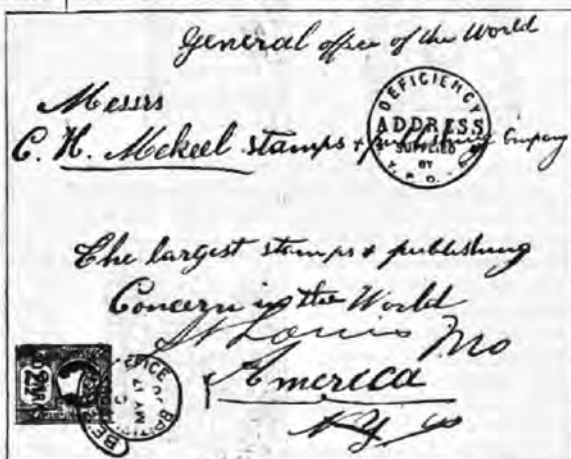 General office of the World
Messrs
C. H. Mekeel stamps & publishing Company
DEFICIENCY
ADDRESS
SUPPLIED
BY
The largest stamps & publishing
Concern in the World
St Louis Mo
America
N Y
MY 17